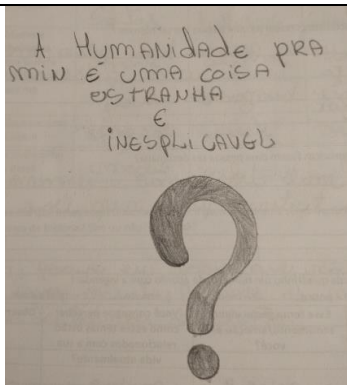 A HUMANIDADE PRA
MIN É UMA COISA
ESTRANHA
E
INESPLICAVEL
?